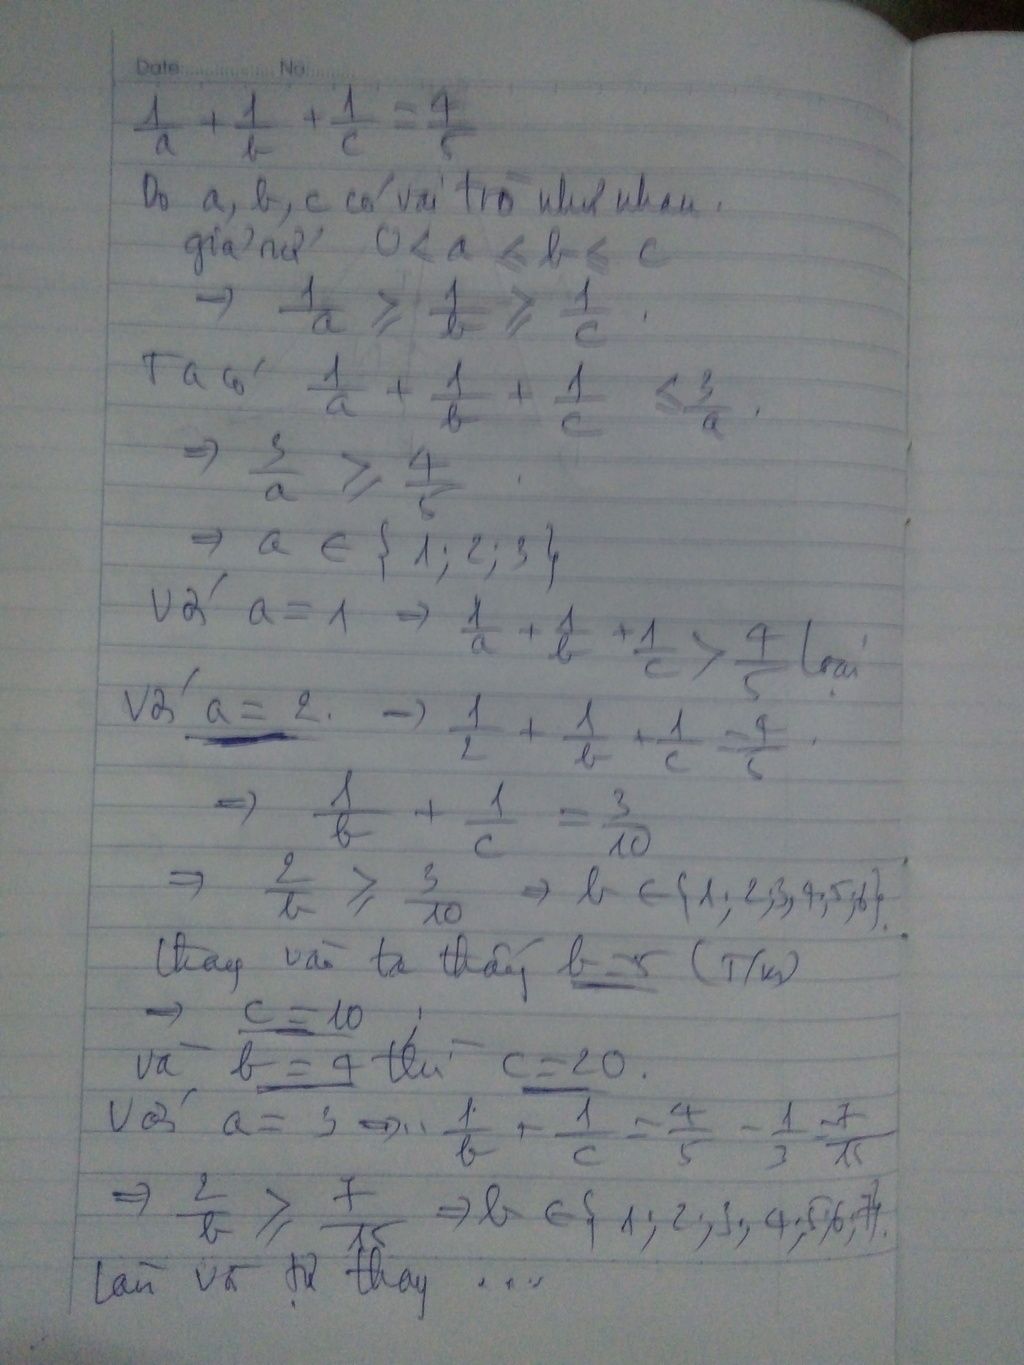 Date No
1/a + 1/b + 1/c = 4/5
Do a, b, c có vai trò như nhau.
giả sử 0 < a ≤ b ≤ c
→ 1/a ≥ 1/b ≥ 1/c .
Ta có 1/a + 1/b + 1/c ≤ 3/a .
⇒ 3/a ≥ 4/5 .
⇒ a ∈ {1; 2; 3}
Với a = 1 ⇒ 1/a + 1/b + 1/c > 4/5 loại
Với a = 2. → 1/2 + 1/b + 1/c = 4/5 .
⇒ 1/b + 1/c = 3/10
⇒ 2/b ≥ 3/10 ⇒ b ∈ {1; 2; 3, 4; 5; 6}.
thay vào ta thấy b = 5 (T/m)
⇒ c = 10 ;
và b = 4 thì c = 20.
Với a = 3 ⇒ .. 1/b + 1/c = 4/5 - 1/3 = 7/15
⇒ 2/b ≥ 7/15 ⇒ b ∈ {1; 2; 3; 4; 5; 6; 7}.
tự thay ....